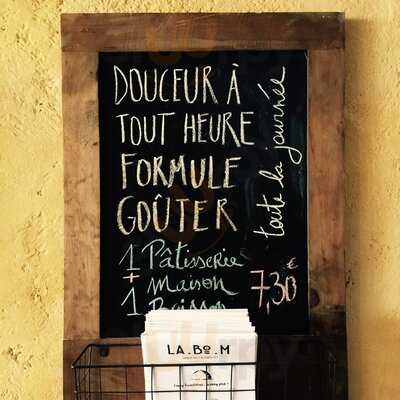 DOUCEUR À
TOUT HEURE
FORMULE
GOÛTER
toute la journée
1 Pâtisserie
+ Maison
1 Boisson
7,30 €
LA.BO.M